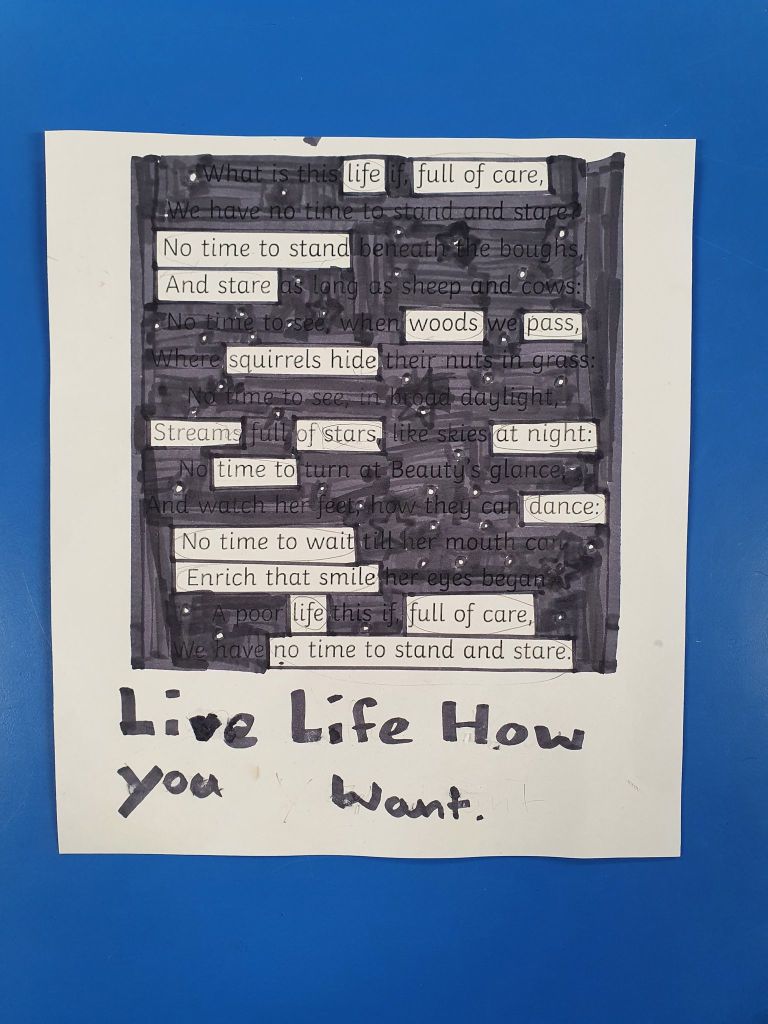 What is this life if, full of care,
We have no time to stand and stare?
No time to stand beneath the boughs,
And stare as long as sheep and cows:
No time to see, when woods we pass,
Where squirrels hide their nuts in grass:
No time to see, in broad daylight,
Streams full of stars, like skies at night:
No time to turn at Beauty's glance,
And watch her feet, how they can dance:
No time to wait till her mouth can
Enrich that smile her eyes began
A poor life this if, full of care,
We have no time to stand and stare.
Live Life How
you Want.